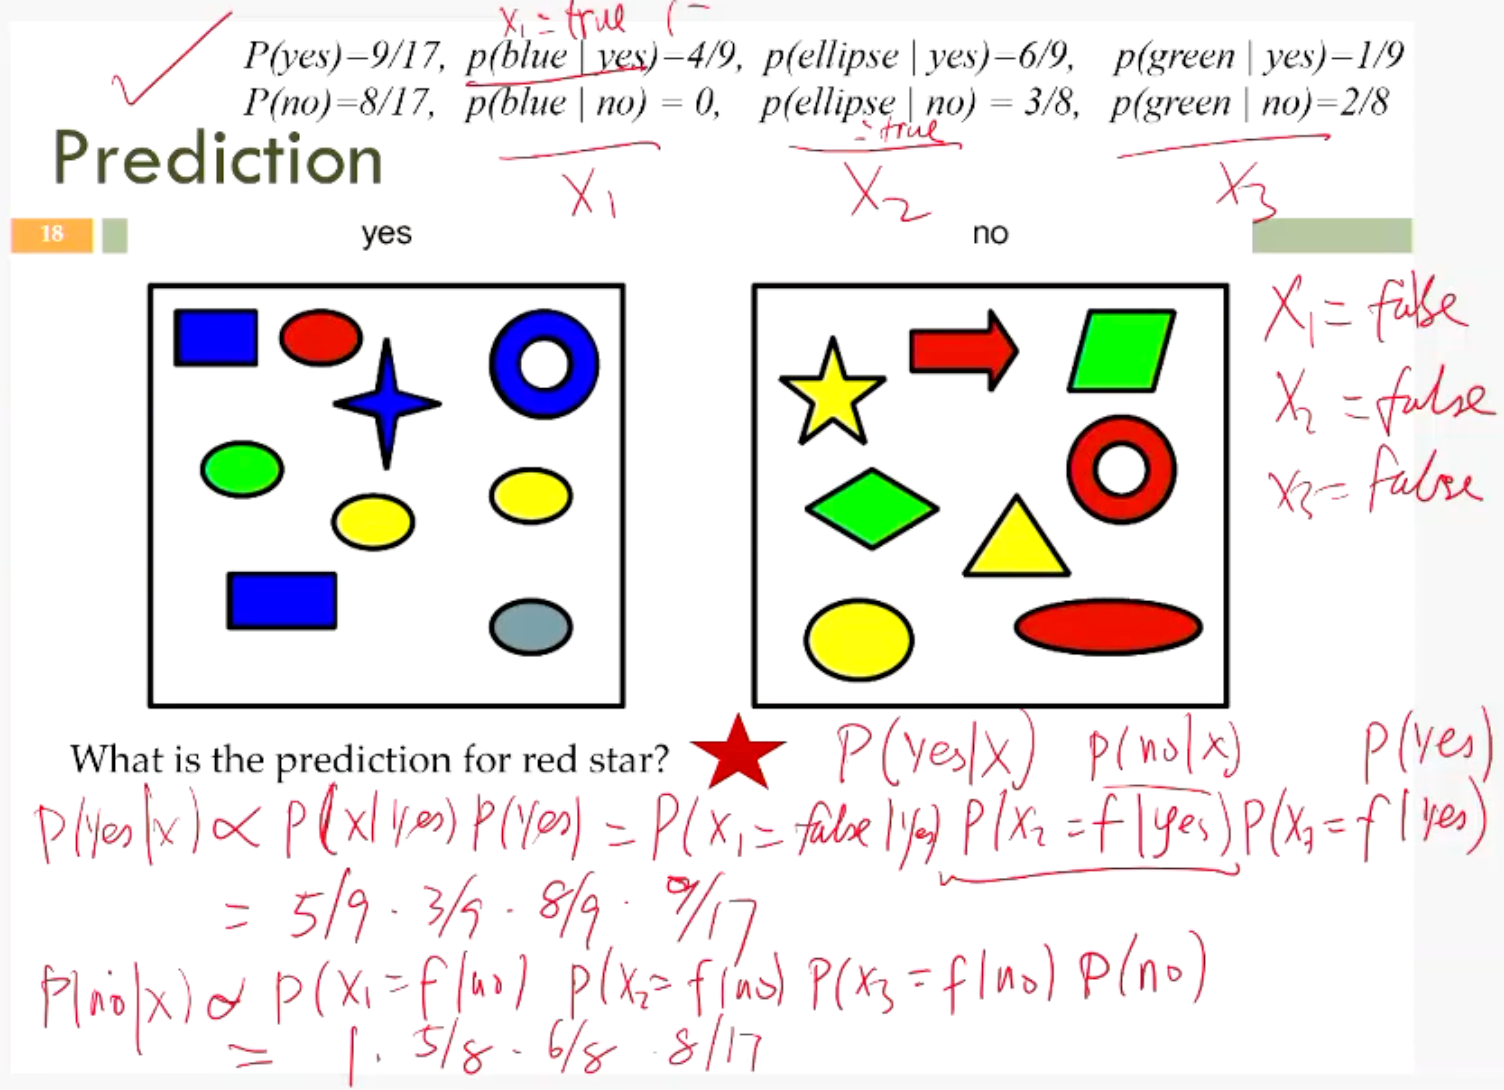 X₁ = true (
P(yes)=9/17, p(blue | yes)=4/9, p(ellipse | yes)=6/9, p(green | yes)=1/9
P(no)=8/17, p(blue | no) = 0, p(ellipse | no) = 3/8, p(green | no)=2/8
= true
Prediction
X₁ X₂ X₃
18
yes no
X₁ = false
X₂ = false
X₃ = false
What is the prediction for red star? P(yes|X) P(no|X) P(yes)
P(yes|x) ∝ P(x|yes) P(yes) = P(X₁ = false|yes) P(X₂ = f|yes) P(X₃ = f|yes)
= 5/9 · 3/9 · 8/9 · 9/17
P(no|x) ∝ P(X₁ = f|no) P(X₂ = f|no) P(X₃ = f|no) P(no)
= 1 · 5/8 · 6/8 · 8/17